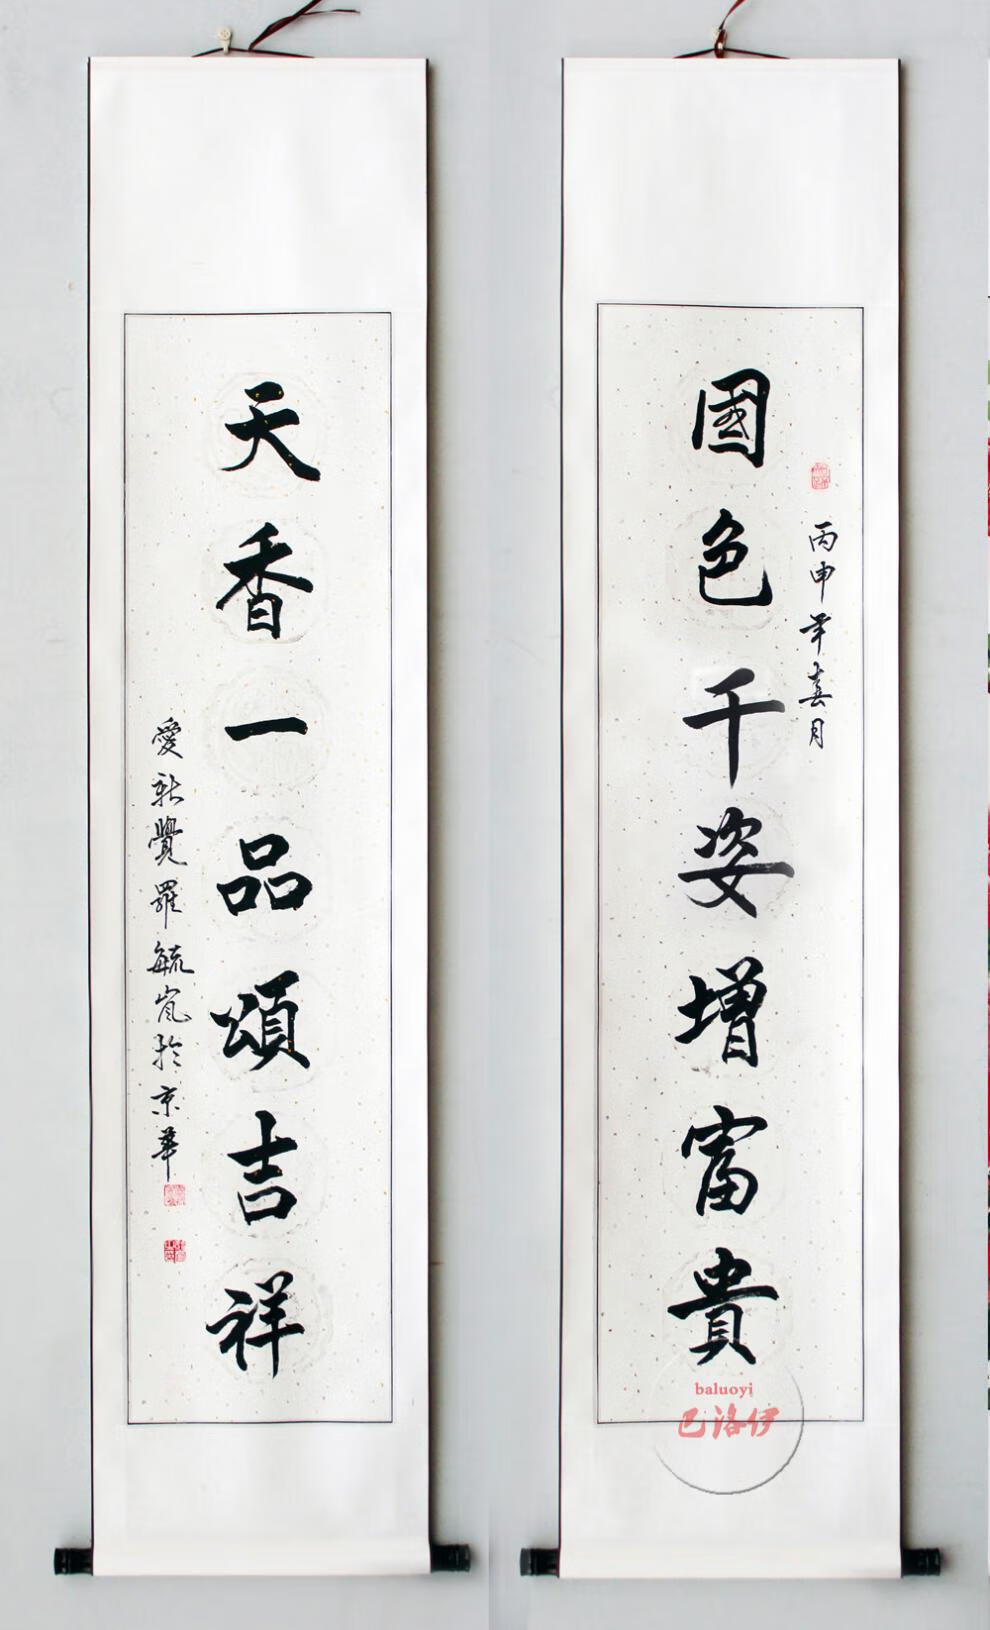 國色千姿增富貴
丙申年喜月
天香一品頌吉祥
愛新覺羅毓嵐於京華
baluoyi
巴洛伊